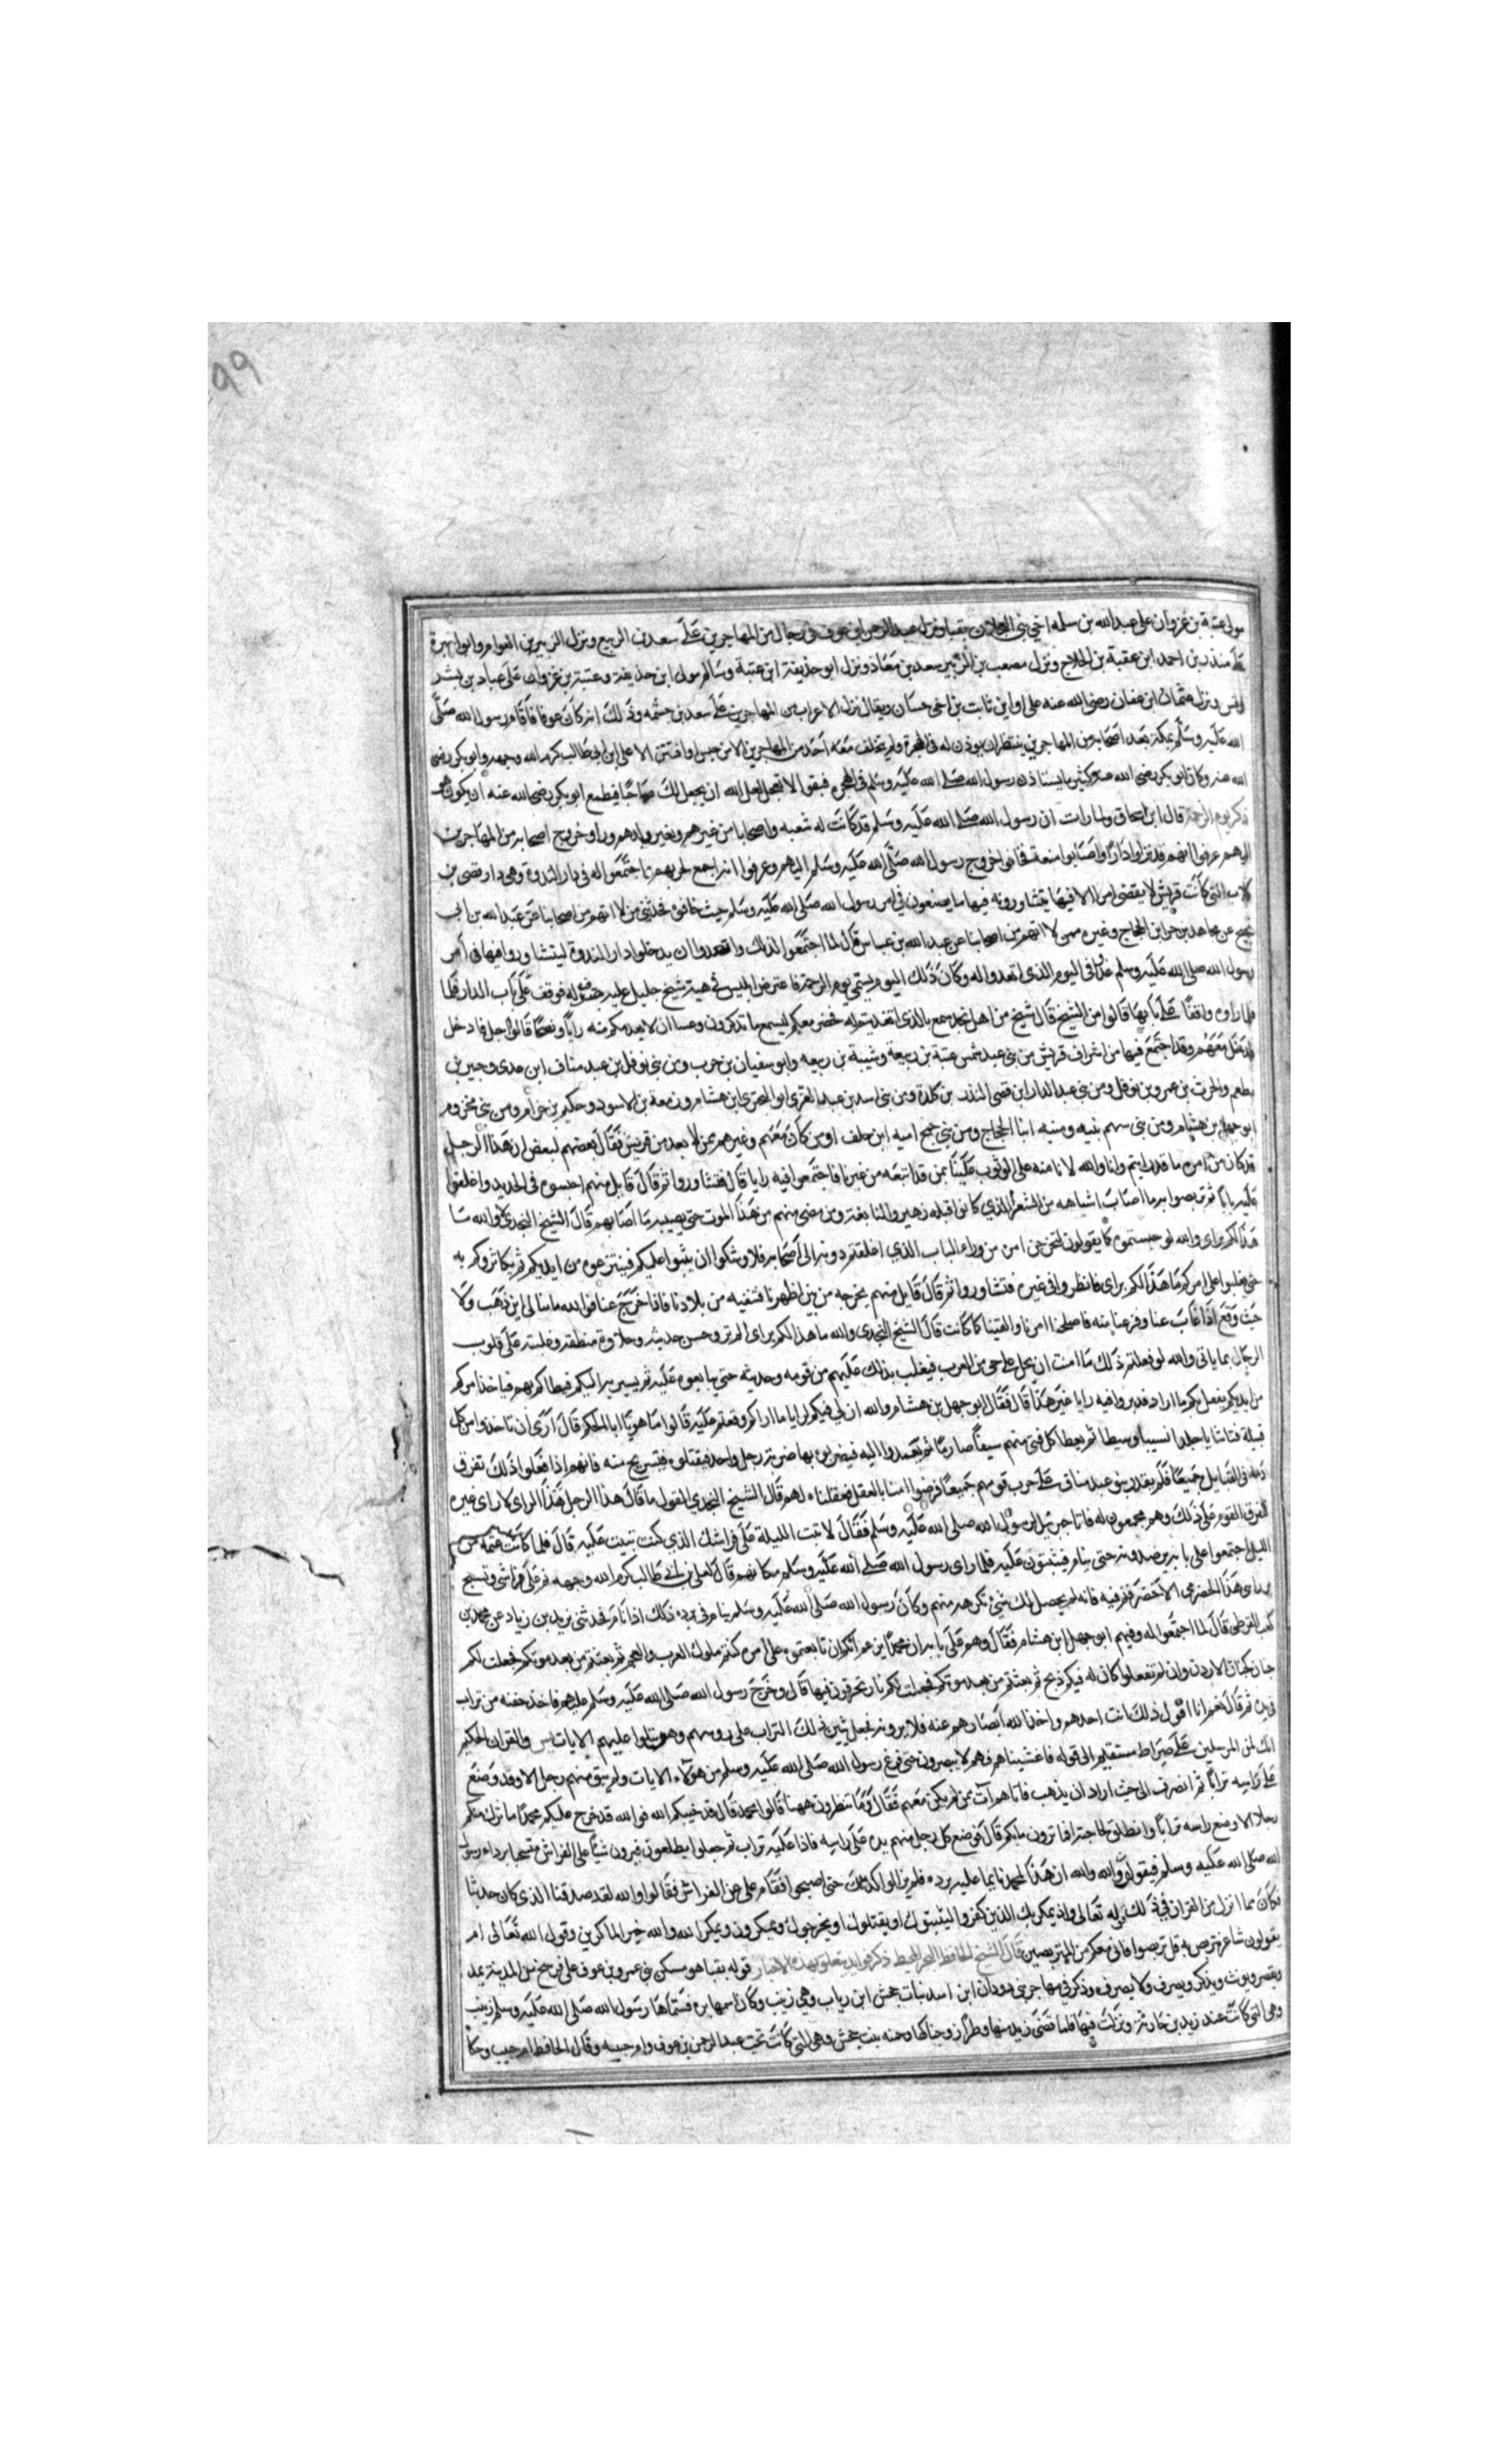 99
مولى عتبة بن غزوان على عبد الله بن سلمه اخي بني العجلان بقبا ونزل عبد الرحمن ابن عوف في رجال من المهاجرين على سعد بن الربيع ونزل الزبير بن العوام وابو سبرة
على منذر بن احمد ابن عقبة بن الجلاح ونزل مصعب بن الزبير سعد بن معاذ ونزل ابو حذيفة ابن عتبة وسالم مولى ابن حذيفة وعتبة بن غزوان على عباد بن بشر
ونزل عثمان ابن عفان رضي الله عنه على اوابن ثابت بن اخي حسان ويقال نزل الاعراب من المهاجرين على سعد بن خثمه وذلك انه كان عوفا فاقام رسول الله صلى
الله عليه وسلم بمكة بعد اصحابه من المهاجرين ينتظر ان يوذن له في الهجرة ولم يتخلف معه احد من المهاجرين الا من حبس او افتتن الا علي ابن ابي طالب كرم الله وجهه وابو بكر رضي
الله عنه وكان ابو بكر رضي الله عنه كثيرا ما يستاذن رسول الله صلى الله عليه وسلم في الهجره فيقول لا تعجل لعل الله ان يجعل لك صاحبا فيطمع ابو بكر رضي الله عنه ان يكون هو
ذكر يوم الرحمة قال ابن اسحاق ولما رات ان رسول الله صلى الله عليه وسلم قد كانت له شيعه واصحابا من غيرهم وبغير بلدهم وراو خروج اصحابه من المهاجرين
اليهم عرفوا انهم قد نزلوا دارا واصابوا منعة فخافوا خروج رسول الله صلى الله عليه وسلم اليهم وعرفوا انه اجمع لحربهم فاجتمعوا له في دار الندوة وهي دار قصي بن
كلاب التي كانت قريش لا يقضى امر الا فيها يتشاورون فيها ما يصنعون في امر رسول الله صلى الله عليه وسلم حيث خافوه فحدثني من لا اتهم من اصحابنا عن عبد الله بن ابي
نجيح عن مجاهد بن جرا بن الحجاج وغيره ممن لا اتهم من اصحابنا عن عبد الله بن عباس قال لما اجتمعوا لذلك واتعدوا ان يدخلوا دار الندوة ليتشاوروا فيها في امر
رسول الله صلى الله عليه وسلم غدوا في اليوم الذي اتعدوا له وكان ذلك اليوم يسمى يوم الرحمة فاعترض ابليس في هيئة شيخ جليل عليه بت له فوقف على باب الدار فلما
فلما راوه واقفا على بابها قالوا من الشيخ قال شيخ من اهل نجد سمع بالذي اتعدتم له فحضر معكم ليسمع ما تذكرون وعسا ان لا يعدمكم منه رايا ونصحا قالوا اجل فادخل
فدخل معهم وقد اجتمع فيها من اشراف قريش من بني عبد شمس عتبة بن ربيعة وشيبة بن ربيعه وابو سفيان بن حرب ومن بني نوفل بن عبد مناف ابن عدي وجبير بن
مطعم والحرث بن عمرو بن نوفل ومن بني عبد الدار ابن قصي المنذر بن كلدة ومن بني اسد بن عبد العزى ابو البحتري ابن هشام وزمعة بن الاسود وحكيم بن حزام ومن بني مخزوم
ابو جهل بن هشام ومن بني سهم بنيه ومنبه ابنا الحجاج ومن بني جمح اميه ابن خلف اومن كان معهم وغيرهم ممن لا يعد من قريش فقال بعضهم لبعض ان هذا الرجل
قد كان من امره ما قد رايتم وانا والله لا نامنه على الوثوب علينا بمن قد اتبعه من غيرنا فاجتمعوا فيه رايا قال فتشاوروا ثم قال قايل منهم احبسوه في الحديد واغلقوا
عليه بابا ثم تربصوا به ما اصاب اشباهه من الشعرا الذي كانوا قبله زهير والنابغة ومن مضى منهم من هذا الموت حتى يصيبه ما اصابهم قال الشيخ النجدي لا والله ما
هذا لكم براي والله لو حبستموه كما يقولون لتخرجن امره من وراء الباب الذي اغلقتم دونه الى اصحابه فلاوشكوا ان يثبوا عليكم فينتزعوه من ايديكم ثم يكاثروكم به
حتى يغلبوا على امركم ما هذا لكم براي فانظروا في غيره فتشاوروا ثم قال قايل منهم نخرجه من بين اظهرنا فننفيه من بلادنا فاذا خرج عنا فوالله ما نبالي اين ذهب ولا
حيث وقع اذا غاب عنا وفرغنا منه فاصلحنا امرنا والفتنا كما كانت قال الشيخ النجدي والله ما هذا لكم براي الم تروا حسن حديثه وحلاوة منطقه وغلبته على قلوب
الرجال بما ياتي والله لو فعلتم ذلك ما امنت ان يحل على حي من العرب فيغلب بذلك عليهم من قومه وحديثه حتى يبايعوه عليه ثم يسير به اليكم فيطاكم بهم فياخذ امركم
من ايديكم يفعل بكم ما اراد فدبروا فيه رايا غير هذا قال فقال ابو جهل بن هشام والله ان لي فيكم لرايا ما اراكم وقعتم عليه قالوا ما هو يا ابا الحكم قال ارى ان تاخذوا من كل
قبيلة فتا شابا جلدا نسيبا وسيطا ثم يعطا كل فتى منهم سيفا صارما ثم يعمدوا اليه فيضربوه بها ضربة رجل واحد فيقتلوه فنستريح منه فانهم اذا فعلوا ذلك تفرق
دمه في القبايل جميعا فلم يقدر بنو عبد مناف على حرب قومهم جميعا فرضوا منا بالعقل فعقلناه لهم قال الشيخ النجدي القول ما قال هذا الرجل هذا الراي لا راي غيره
فتفرق القوم على ذلك وهم مجمعون له فاتا جبريل رسول الله صلى الله عليه وسلم فقال لا تبت الليلة على فراشك الذي كنت تبيت عليه قال فلما كانت عتمة من
الليل اجتمعوا على بابه يرصدونه حتى ينام فيثبون عليه فلما راى رسول الله صلى الله عليه وسلم مكانهم قال لعلي بن ابي طالب كرم الله وجهه نم على فراشي وتسبح
بردائي هذا الحضرمي الاخضر فنم فيه فانه لم يحصل لك شيء تكرهه منهم وكان رسول الله صلى الله عليه وسلم ينام في برده ذلك اذا نام فحدثني يزيد بن زياد عن محمد بن
كعب القرظي قال لما اجتمعوا له وفيهم ابو جهل ابن هشام فقال وهم على بابه ان محمدا يزعم انكم ان تابعتموه على امره كنتم ملوك العرب والعجم ثم بعثتم من بعد موتكم فجعلت لكم
جنان كجنات الاردن وان لم تفعلوا كان له فيكم ذبح ثم بعثتم من بعد موتكم فجعلت لكم نار تحرقون فيها قال وخرج رسول الله صلى الله عليه وسلم عليهم فاخذ حفنه من تراب
في يده ثم قال نعم انا اقول ذلك انت احدهم واخذ الله ابصارهم عنه فلا يرونه فجعل ينثر ذلك التراب على روسهم وهو يتلوا عليهم الايات يس والقران الحكيم
انك لمن المرسلين على صراط مستقيم الى قوله فاغشيناهم فهم لا يبصرون حتى فرغ رسول الله صلى الله عليه وسلم من هولاء الايات ولم يبق منهم رجل الا وقد وضع
على راسه ترابا ثم انصرف الى حيث اراد ان يذهب فاتاهم آت ممن لم يكن معهم فقال وما تنتظرون ههنا قالوا محمد قال قد خيبكم الله فوالله قد خرج عليكم محمد ما ترك منكم
رجلا الا وضع راسه ترابا وانطلق لحاجته افما ترون ما بكم قال فوضع كل رجل منهم يده على راسه فاذا عليه تراب ثم جعلوا يطلعون فيرون شيئا على الفراش متسجيا برداء رسول
الله صلى الله عليه وسلم فيقولون والله والله ان هذا لمحمد نايما عليه برده فلم يزالوا كذلك حتى اصبحوا فقام علي عن الفراش فقالوا والله لقد صدقنا الذي كان حدثنا
فكان مما انزل من القران في ذلك قوله تعالى واذ يمكر بك الذين كفروا ليثبتوك او يقتلوك او يخرجوك ويمكرون ويمكر الله والله خير الماكرين وقول الله تعالى ام
يقولون شاعر نتربص به قل تربصوا فاني معكم من المتربصين قال الشيخ الحافظ البحر المحيط ذكر فوايد يتعلق بهذه الاخبار قوله بقبا هو مسكن بني عمرو بن عوف على فرسخ من المدينة يمد
ويقصر ويونث ويذكر ويصرف ولا يصرف وذكر في مهاجر بني دودان ابن اسد بنات جحش ابن رياب وهي زينب وكان اسمها بره فسماها رسول الله صلى الله عليه وسلم زينب
وهي التي كانت عند زيد بن حارثة ونزلت فيها فلما قضى زيد منها وطرا زوجناكها وحمنه بنت جحش وهي التي كانت تحت عبد الرحمن بن عوف وام حبيبه وقال الحافظ ام حبيب وحكا